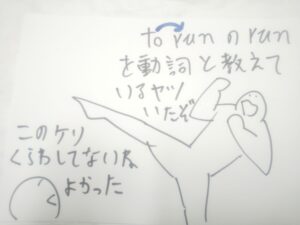 to run の run
を動詞と教えて
いるヤツ
いたぞ
このケリ
くらわしてないね
よかった